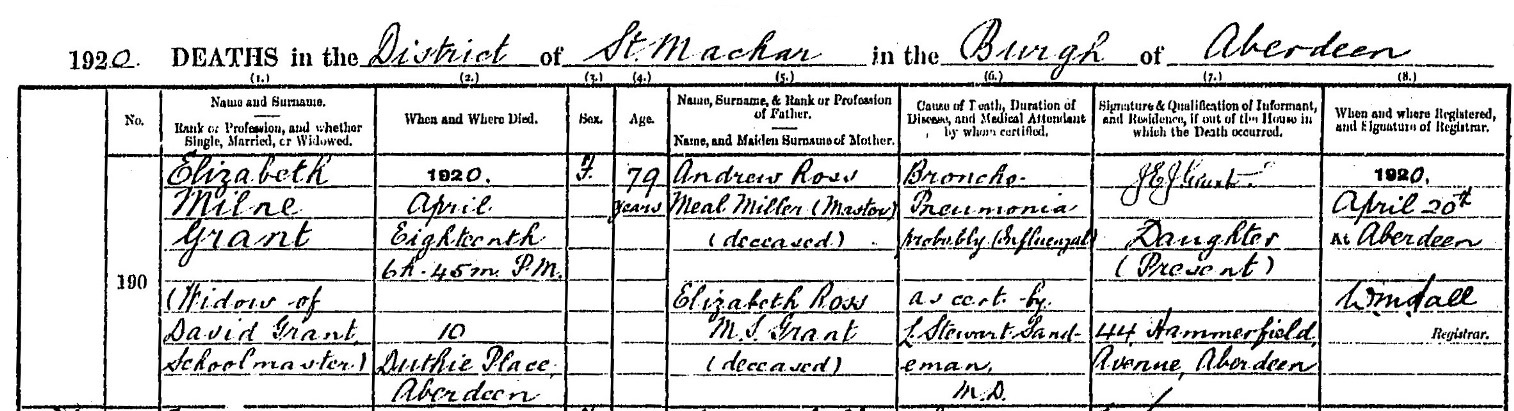 1920. DEATHS in the District of St. Machar in the Burgh of Aberdeen
(1.) (2.) (3.) (4.) (5.) (6.) (7.) (8.)
No.
Name and Surname.
Rank or Profession, and whether
Single, Married, or Widowed.
When and Where Died.
Sex.
Age.
Name, Surname, & Rank or Profession
of Father.
Name, and Maiden Surname of Mother.
Cause of Death, Duration of
Disease, and Medical Attendant
by whom certified.
Signature & Qualification of Informant,
and Residence, if out of the House in
which the Death occurred.
When and where Registered,
and Signature of Registrar.
190
Elizabeth
Milne
Grant
(Widow of
David Grant,
Schoolmaster)
1920.
April
Eighteenth
6h. 45m. P.M.
10
Duthie Place,
Aberdeen
F.
79
years
Andrew Ross
Meal Miller (Master)
(deceased)
Elizabeth Ross
M.S. Grant
(deceased)
Broncho-
Pneumonia
probably (Influenzal)
as cert. by
L. Stewart Sand-
eman,
M.D.
Grant
Daughter
(Present)
44 Hammerfield
Avenue, Aberdeen
1920.
April 20th
At Aberdeen
Registrar.